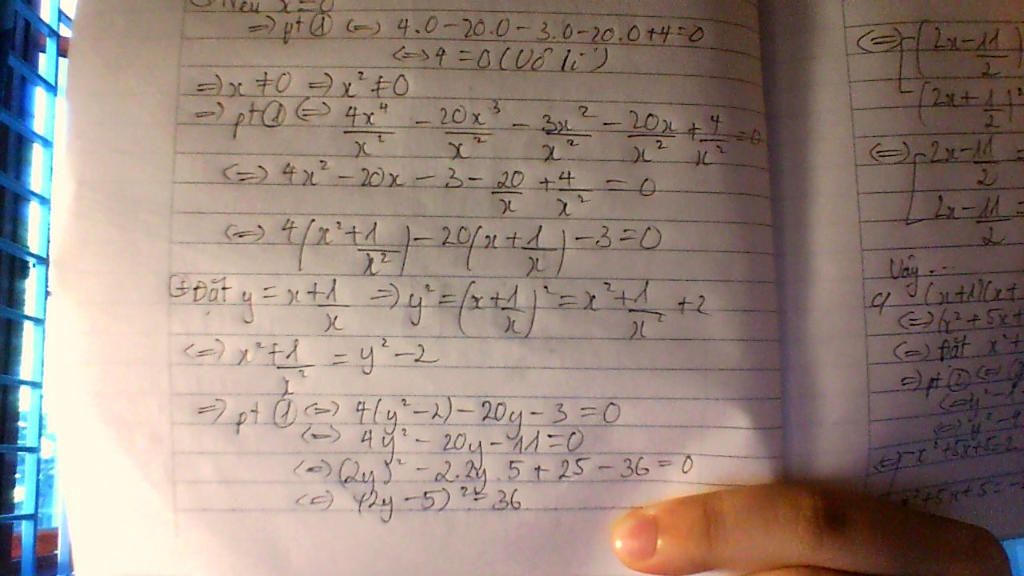 Nếu x=0
=> pt ① <=> 4.0-20.0-3.0-20.0+4=0
<=> 4=0 (Vô lí)
=> x ≠ 0 => x² ≠ 0
=> pt ① <=> 4x⁴/x² - 20x³/x² - 3x²/x² - 20x/x² + 4/x² = 0
<=> 4x² - 20x - 3 - 20/x + 4/x² = 0
<=> 4(x²+1/x²) - 20(x+1/x) - 3 = 0
+ Đặt y = x+1/x => y² = (x+1/x)² = x²+1/x² +2
<=> x²+1/x² = y² - 2
=> pt ① <=> 4(y²-2) - 20y - 3 = 0
<=> 4y² - 20y - 11 = 0
<=> (2y)² - 2.2y.5 + 25 - 36 = 0
<=> (2y-5)² = 36
<=> (2x-11/2)
(2x+1/2)²
<=> 2x-11/2 =
2x-11/2 =
Vậy...
9 (x+1)(x+
<=> (x²+5x+
<=> Đặt x²+
=> pt ② <=>